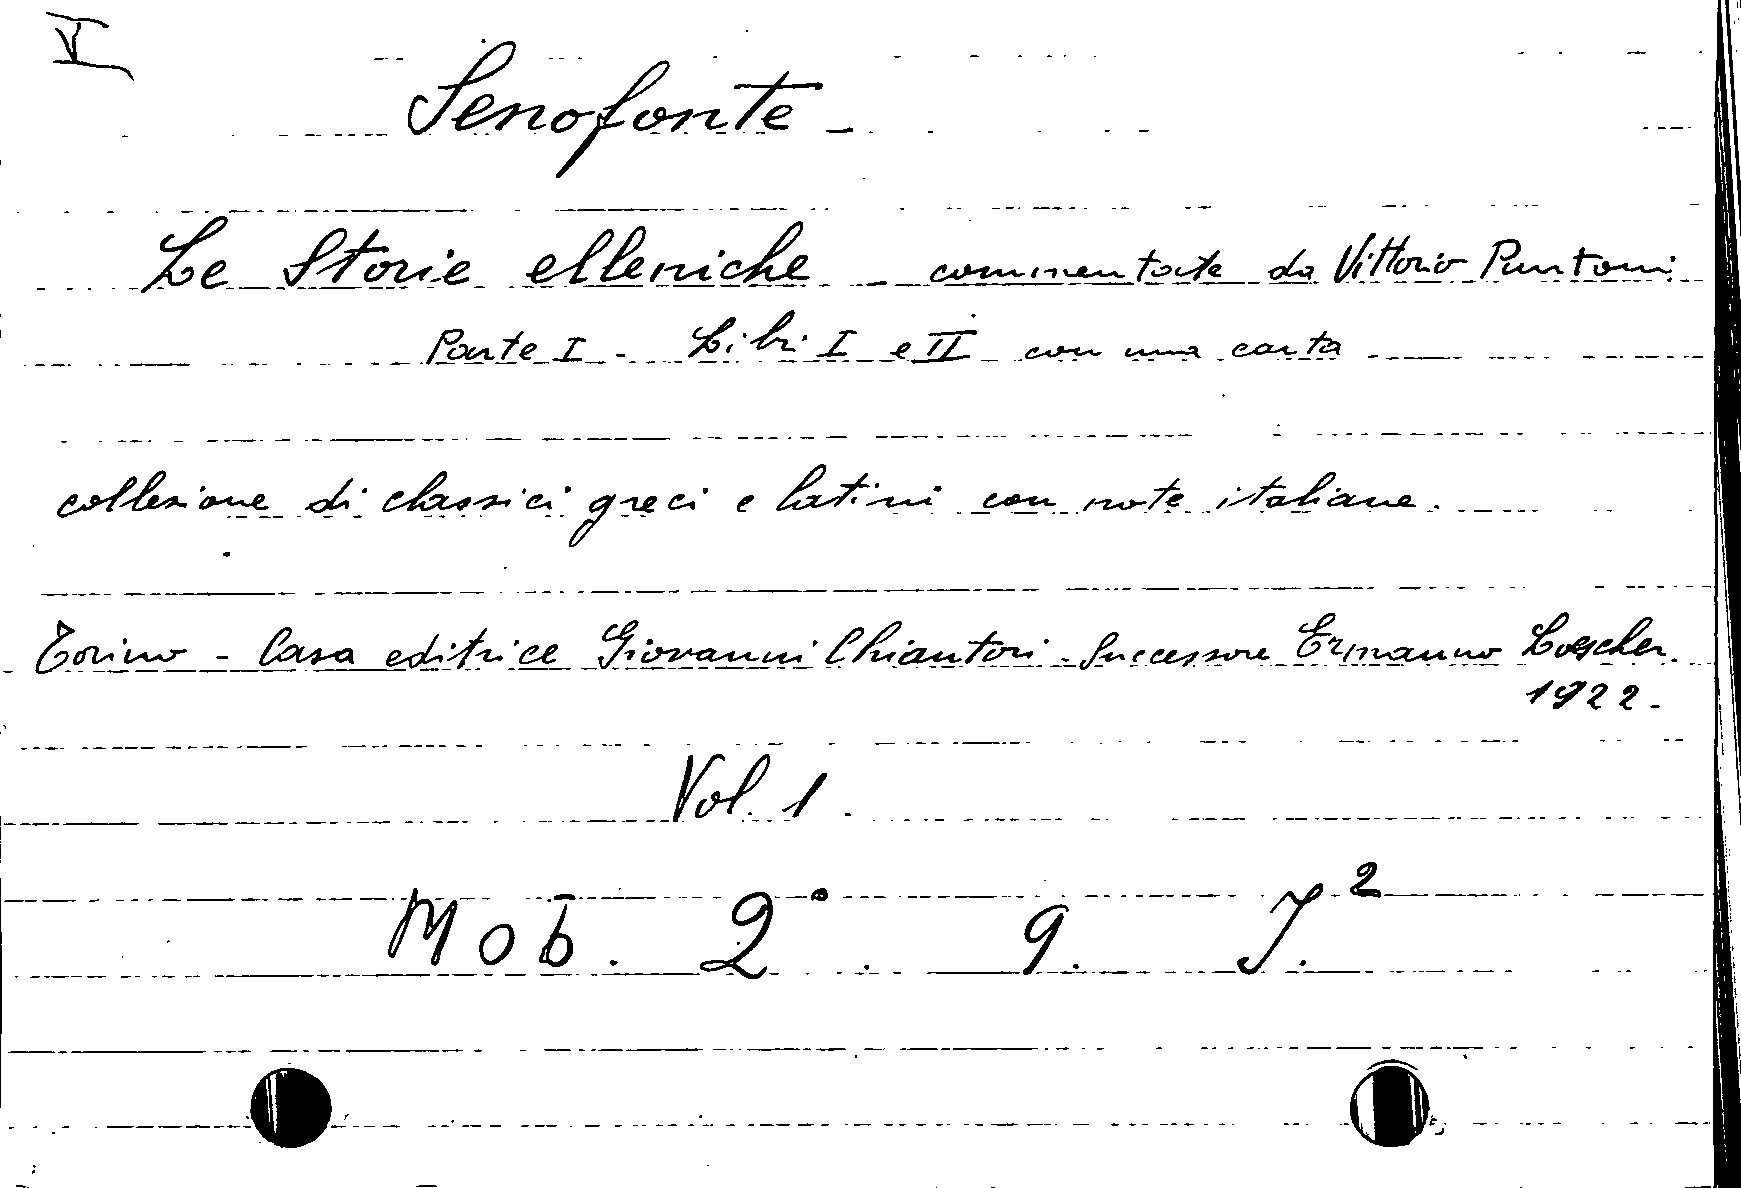 V
Senofonte -
Le Storie elleniche - commentate da Vittorio Puntoni
Parte I - Libri I e II con una carta
collezione di classici greci e latini con note italiane.
Torino - Casa editrice Giovanni Chiantori - Successore Ermanno Loescher.
1922.-
Vol. 1.
Mob. 2°. 9. J.²